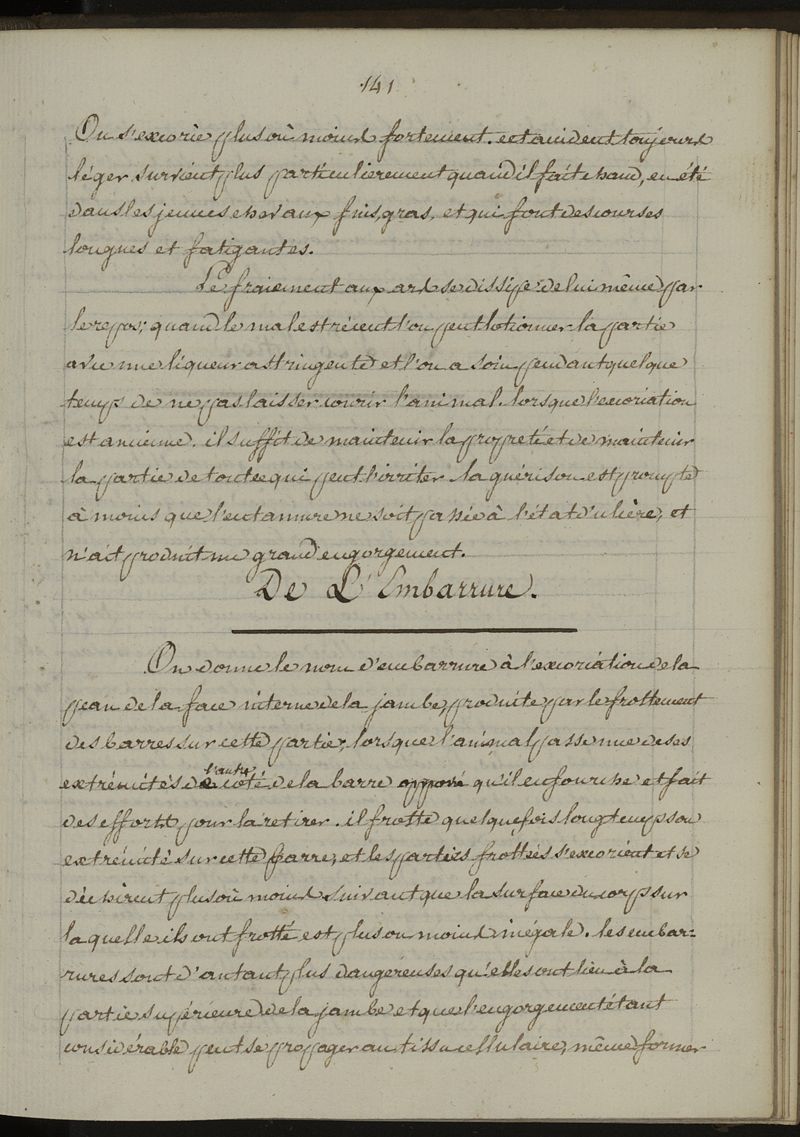 141
Ou s'excorie plus où moins fortement. cet accident toujours
léger survient plus particulierement quand il fait chaud, en été
dans les jeunes chevaux fins, gras, et qui font des courses
longues et fatigantes.
Le fraiement aux ars se dissipe de lui même par
le repos; quand le mal est récent l'on peut lotionner la partie
avec une liqueur astringente et l'on a soin pendant quelque
temps de ne pas laisser courir l'animal. lorsque l'excoriation
est ancienne. il suffit de maintenir la propreté et de maintenir
la partie de tout ce qui peut l'irriter. la guérison est prompte
à moins que l'entamure ne soit passée à l'état d'ulcère, et
n'ait produit un grand engorgement.
De L'Embarrure.
On donne le nom d'embarrure à l'excoriation de la
peau de la face interne de la jambe produite par le frottement
des barres sur cette partie, lorsque l'animal passe une de ses
extrémités de l'autre coté de la barre opposé qu'il enfourche et fait
des efforts pour la retirer. il frotte quelquefois longtemps son
extrémité sur cette barre, et les parties frottées s'excorient et se
déchirent plus où moins suivant que la surface du corps sur
laquelle ils ont frotté est plus ou moins inégale. les embar=
rures sont d'autant plus dangereuses qu'elles ont lieu à la
partie supérieure de la jambe et que l'engorgement étant
considérable peut se propager au tissu cellulaire, même former